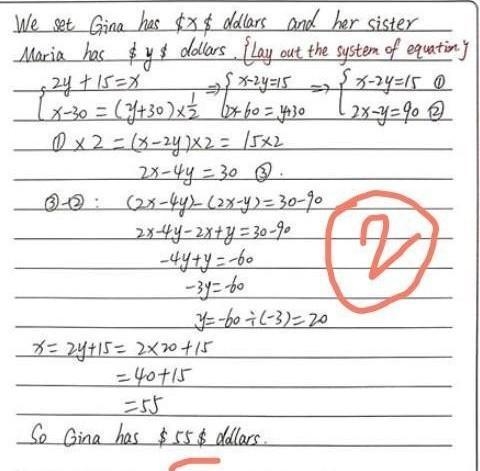 We set Gina has $x$ dollars and her sister
Maria has $y$ dollars. {Lay out the system of equation}
{2y+15=x ⇒ {x-2y=15 ⇒ {x-2y=15 ①
x-30=(y+30)×1/2 2x-60=y+30 2x-y=90 ②
①×2=(x-2y)×2=15×2
2x-4y=30 ③.
③-②: (2x-4y)-(2x-y)=30-90
2x-4y-2x+y=30-90
-4y+y=-60
-3y=-60
y=-60÷(-3)=20
x=2y+15=2×20+15
=40+15
=55
So Gina has $55$ dollars.
2